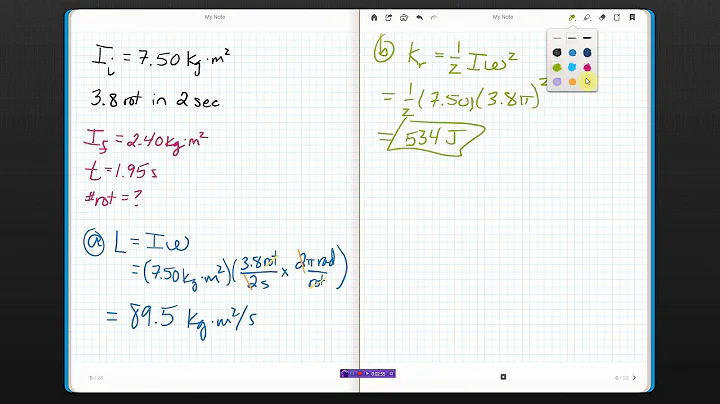 My Note
I_i = 7.50 kg·m²
3.8 rot in 2 sec
I_f = 2.40 kg·m²
t = 1.95 s
#rot = ?
ⓐ L = Iω
= (7.50 kg·m²)(3.8 rot/2 s × 2π rad/rot)
= 89.5 kg·m²/s
5 / 28
My Note
ⓑ K_r = 1/2 Iω²
= 1/2 (7.50)(3.8π)²
= 534 J
6 / 28
0:02:55